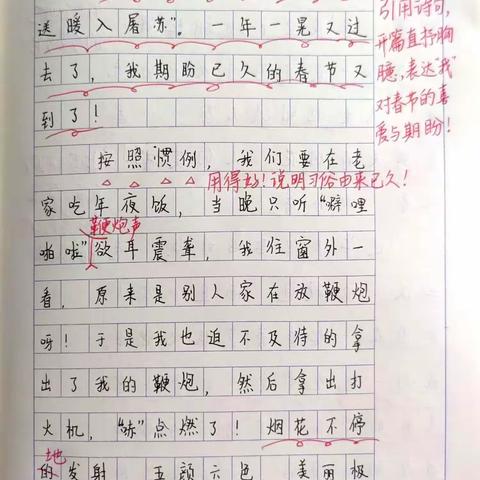 送暖入屠苏”。一年一晃又过
去了，我期盼已久的春节又
到了！
引用诗句，
开篇直抒胸
臆，表达“我”
对春节的喜
爱与期盼！
按照惯例，我们要在老
用得好！说明习俗由来已久！
家吃年夜饭，当晚只听“噼哩
鞭炮声
啪啦”欲耳震聋，我往窗外一
看，原来是别人家在放鞭炮
呀！于是我也迫不及待的拿
出了我的鞭炮，然后拿出打
火机，“哧”点燃了！烟花不停
地
的发射，五颜六色，美丽极